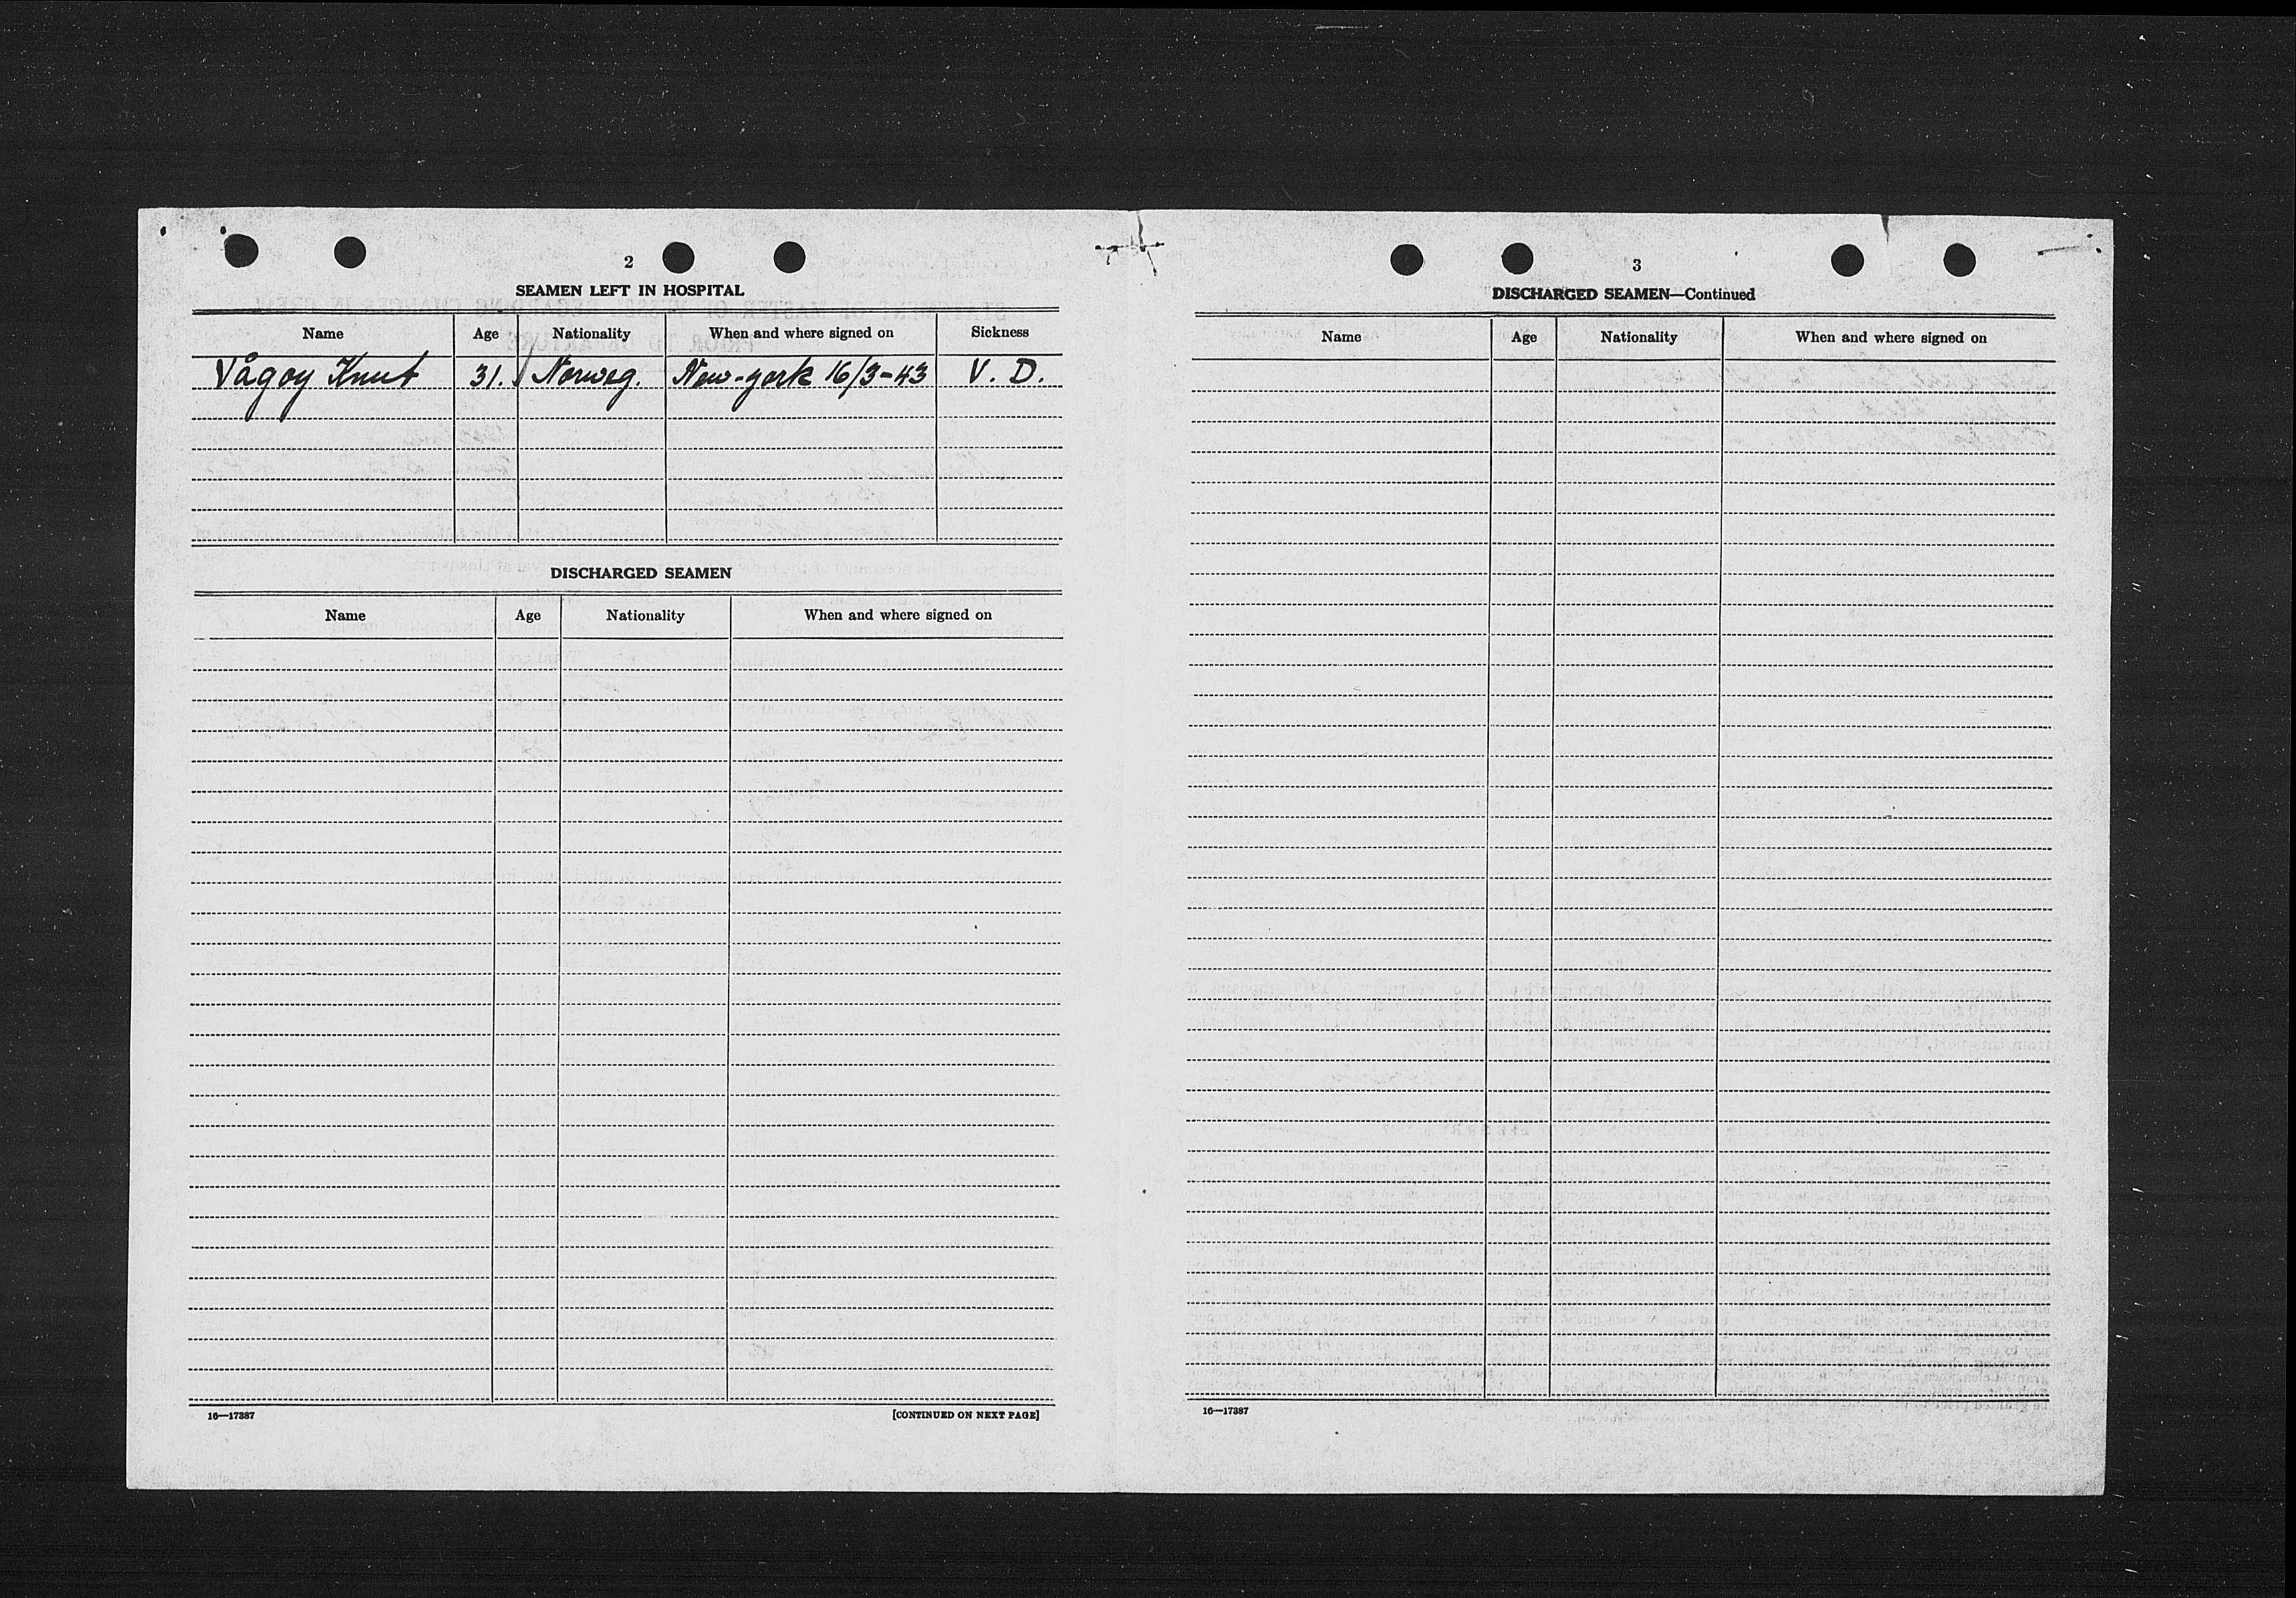 2
SEAMEN LEFT IN HOSPITAL
Name Age Nationality When and where signed on Sickness
Vågoy Knut 31. Norweg. New-york 16/3-43 V. D.
DISCHARGED SEAMEN
Name Age Nationality When and where signed on
16—17387 [CONTINUED ON NEXT PAGE]
3
DISCHARGED SEAMEN—Continued
Name Age Nationality When and where signed on
16—17387